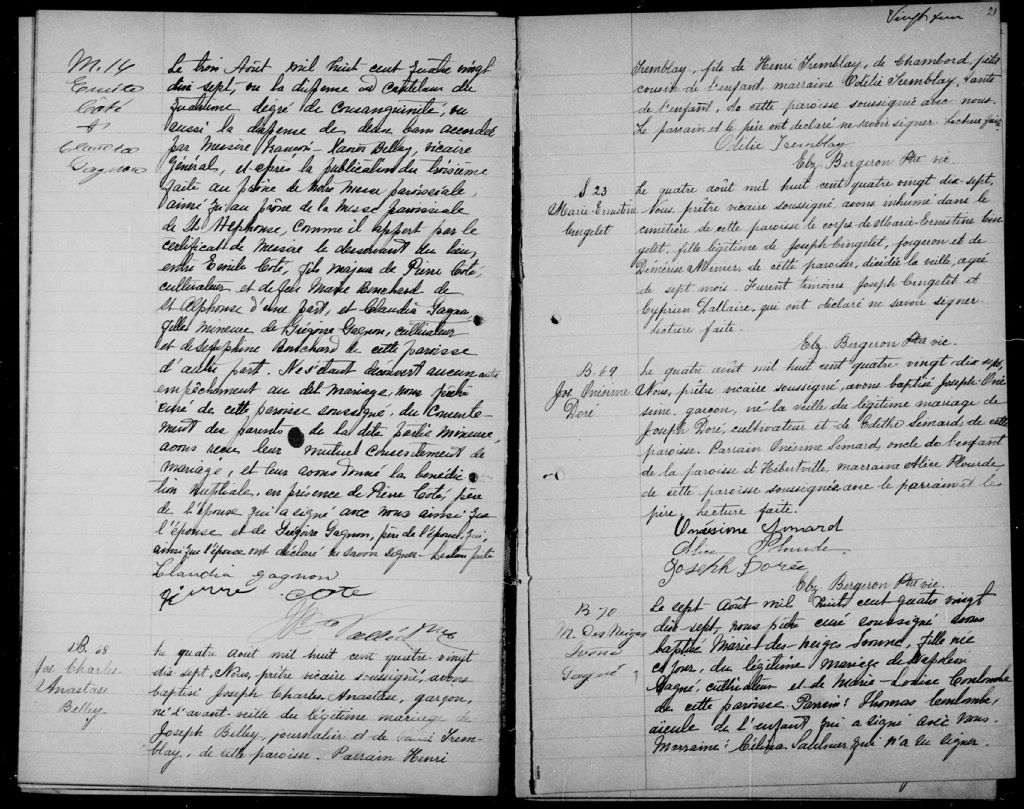 M. 14
Emile
Coté
&
Claudia
Gagnon
Le trois Août mil huit cent quatre vingt
dix sept, vu la dispense du
quatrième degré de consanguinité, vu
aussi la dispense de deux bans accordée
par Messire Belley, vicaire
général, et après la publication du troisième
faite au prône de notre Messe paroissiale,
ainsi qu'au prône de la Messe paroissiale
de St Alphonse, comme il appert par le
certificat de Messire le desservant du lieu,
entre Emile Coté, fils majeur de Pierre Coté,
cultivateur et de Marie Bouchard de
St Alphonse d'une part, et Claudia Gagnon,
fille mineure de Grégoire Gagnon, cultivateur
et de Séraphine Bouchard de cette paroisse
d'autre part. Ne s'étant découvert aucun autre
empêchement au dit mariage, nous prêtre
curé de cette paroisse soussigné, du consente-
ment des parents de la dite partie mineure,
avons reçu leur mutuel consentement de
mariage, et leur avons donné la bénédic
tion nuptiale, en présence de Pierre Coté, père
de l'épouse qui a signé avec nous ainsi que
l'épouse et de Grégoire Gagnon, père de l'épouse qui,
ainsi que l'épouse ont déclaré ne savoir signer. Lecture faite
Claudia gagnon
pierre cote
Vallée Ptre
B. 68
Jos. Charles
Anastase
Belley
Le quatre aout mil huit cent quatre-vingt
dix sept, Nous, prêtre vicaire soussigné, avons
baptisé Joseph Charles Anastase, garçon,
né l'avant-veille du légitime mariage de
Joseph Belley, journalier et de Trem-
blay, de cette paroisse. Parrain Henri
Vingt et un
21
Tremblay, fils de Henri Tremblay, de Chambord, petit
cousin de l'enfant, marraine Odélie Tremblay, tante
de l'enfant, de cette paroisse soussignée avec nous.
Le parrain et le père ont déclaré ne savoir signer. Lecture faite.
Odélie Tremblay
Elz. Bergeron Ptre vic.
S 23
Marie-Ernestine
Cingelet
Le quatre août mil huit cent quatre vingt dix-sept,
Nous, prêtre vicaire soussigné, avons inhumé dans le
cimetière de cette paroisse le corps de Marie-Ernestine Cin
gelet, fille légitime de Joseph Cingelet, forgeron et de
Démérise Mimer, de cette paroisse, décédée la veille, agée
de sept mois. Furent témoins Joseph Cingelet et
Cyprien Dallaire, qui ont déclaré ne savoir signer.
Lecture faite.
Elz. Bergeron Ptre vic.
B. 69
Jos. Onésime
Doré
Le quatre août mil huit cent quatre-vingt-dix sept,
Nous, prêtre vicaire soussigné, avons baptisé Joseph-Oné
sime, garçon, né la veille du légitime mariage de
Joseph Doré, cultivateur et de Edithe Simard, de cette
paroisse. Parrain Onésime Simard, oncle de l'enfant
de la paroisse d'Hébertville, marraine Alice Plourde
de cette paroisse soussignée avec le parrain et le
père. Lecture faite.
Onésime Simard
Alice Plourde
Joseph Dorée
Elz. Bergeron Ptre vic.
B 70
M. Des Neiges
Ivone
Gagné
Le sept Août mil huit cent quatre vingt
dix sept, nous prêtre curé soussigné avons
baptisé Marie-des-neiges Ivonne, fille née
ce jour, du légitime mariage de
Gagné, cultivateur et de Marie-Louise Coulombe
de cette paroisse. Parrain: Thomas Coulombe,
aïeule de l'enfant qui a signé avec nous.
Marraine: Célina Saulnier qui n'a su signer.